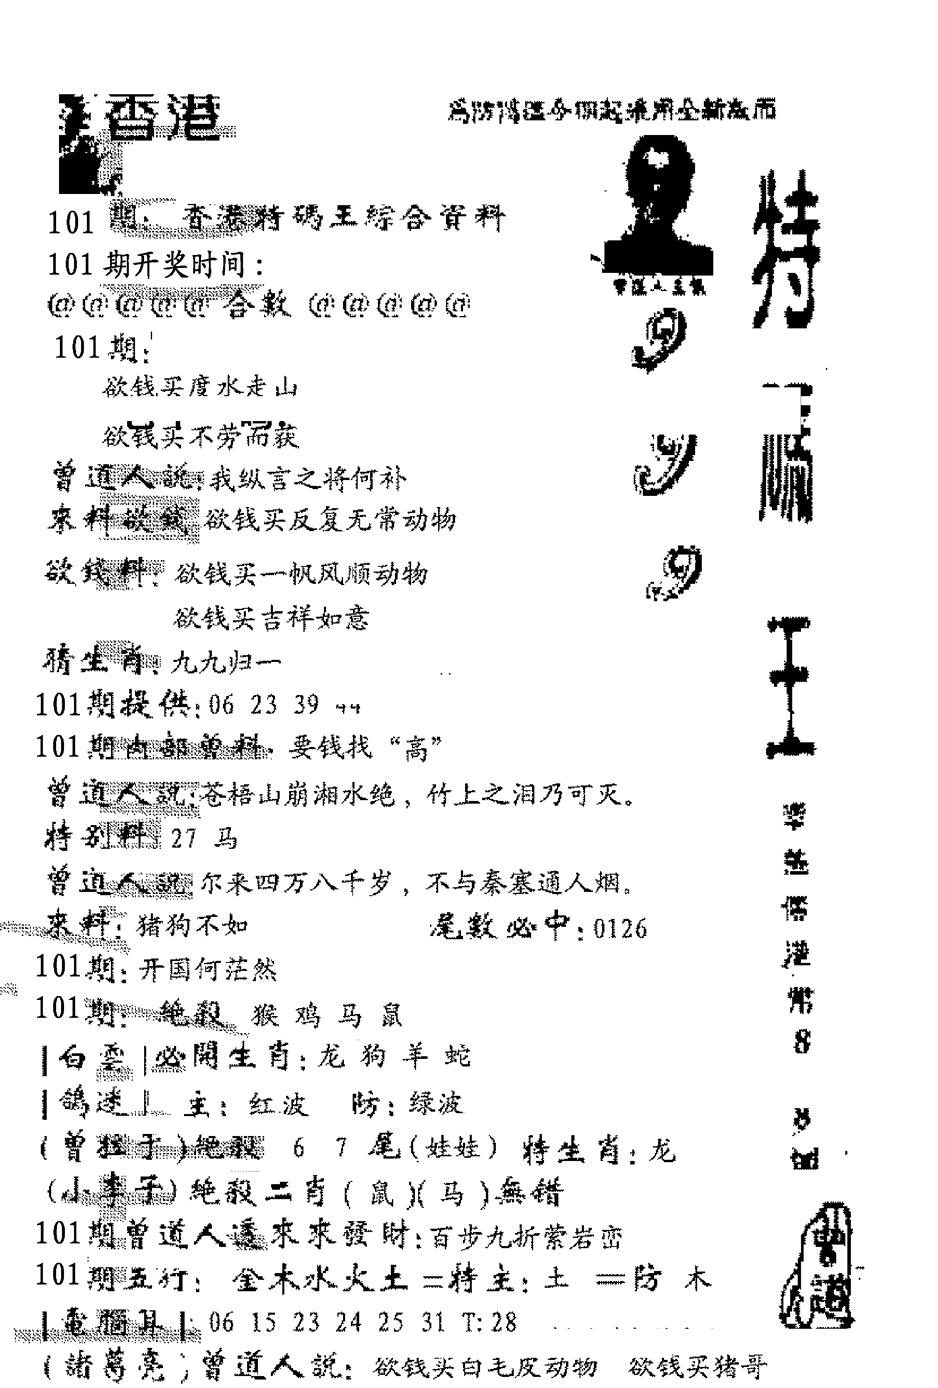 香港
101期: 香港特碼王綜合資料
101期开奖时间:
@@@@@合數@@@@@
101期:
欲钱买度水走山
欲钱买不劳而获
曾道人説:我纵言之将何补
來料欲錢 欲钱买反复无常动物
欲錢料: 欲钱买一帆风顺动物
欲钱买吉祥如意
猜生肖: 九九归一
101期提供:06 23 39 44
101期内部曾料: 要钱找“高”
曾道人説:苍梧山崩湘水绝，竹上之泪乃可灭。
特别料: 27 马
曾道人説: 尔来四万八千岁，不与秦塞通人烟。
來料: 猪狗不如 尾數必中:0126
101期: 开国何茫然
101期: 絶殺 猴 鸡 马 鼠
|白雲|必開生肖: 龙 狗 羊 蛇
|鴿迷| 主: 红波 防: 绿波
(曾 于)絶殺 6 7 尾(娃娃) 特生肖: 龙
(小李子)絶殺二肖(鼠)(马)無錯
101期曾道人透來來發財:百步九折萦岩峦
101期五行: 金木水火土=特主: 土 =防 木
|電腦耳|: 06 15 23 24 25 31 T:28
(諸葛亮)曾道人説: 欲钱买白毛皮动物 欲钱买猪哥
9
9
9
特
王
港
常
8
8
曾道